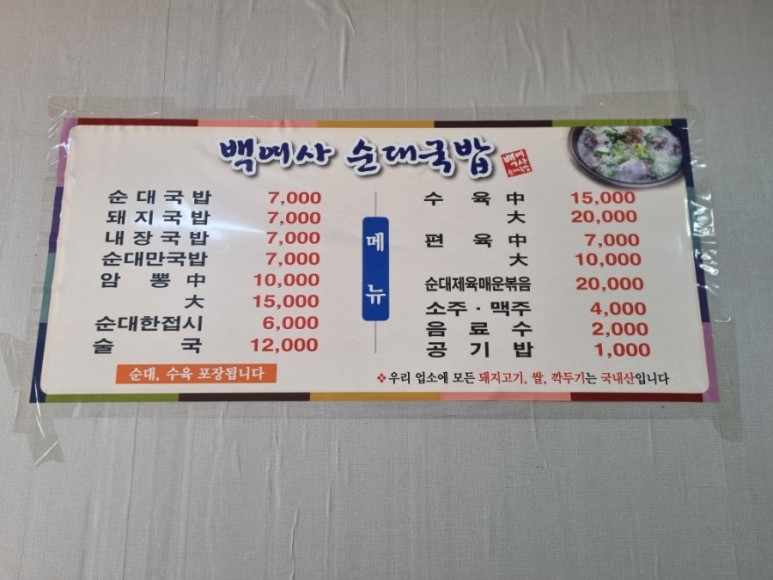 백여사 순대국밥
백여사 순대국밥
메뉴
순대국밥 7,000
돼지국밥 7,000
내장국밥 7,000
순대만국밥 7,000
암뽕 中 10,000
大 15,000
순대한접시 6,000
술국 12,000
순대, 수육 포장됩니다
수육 中 15,000
大 20,000
편육 中 7,000
大 10,000
순대제육매운볶음 20,000
소주·맥주 4,000
음료수 2,000
공기밥 1,000
❖우리 업소에 모든 돼지고기, 쌀, 깍두기는 국내산입니다